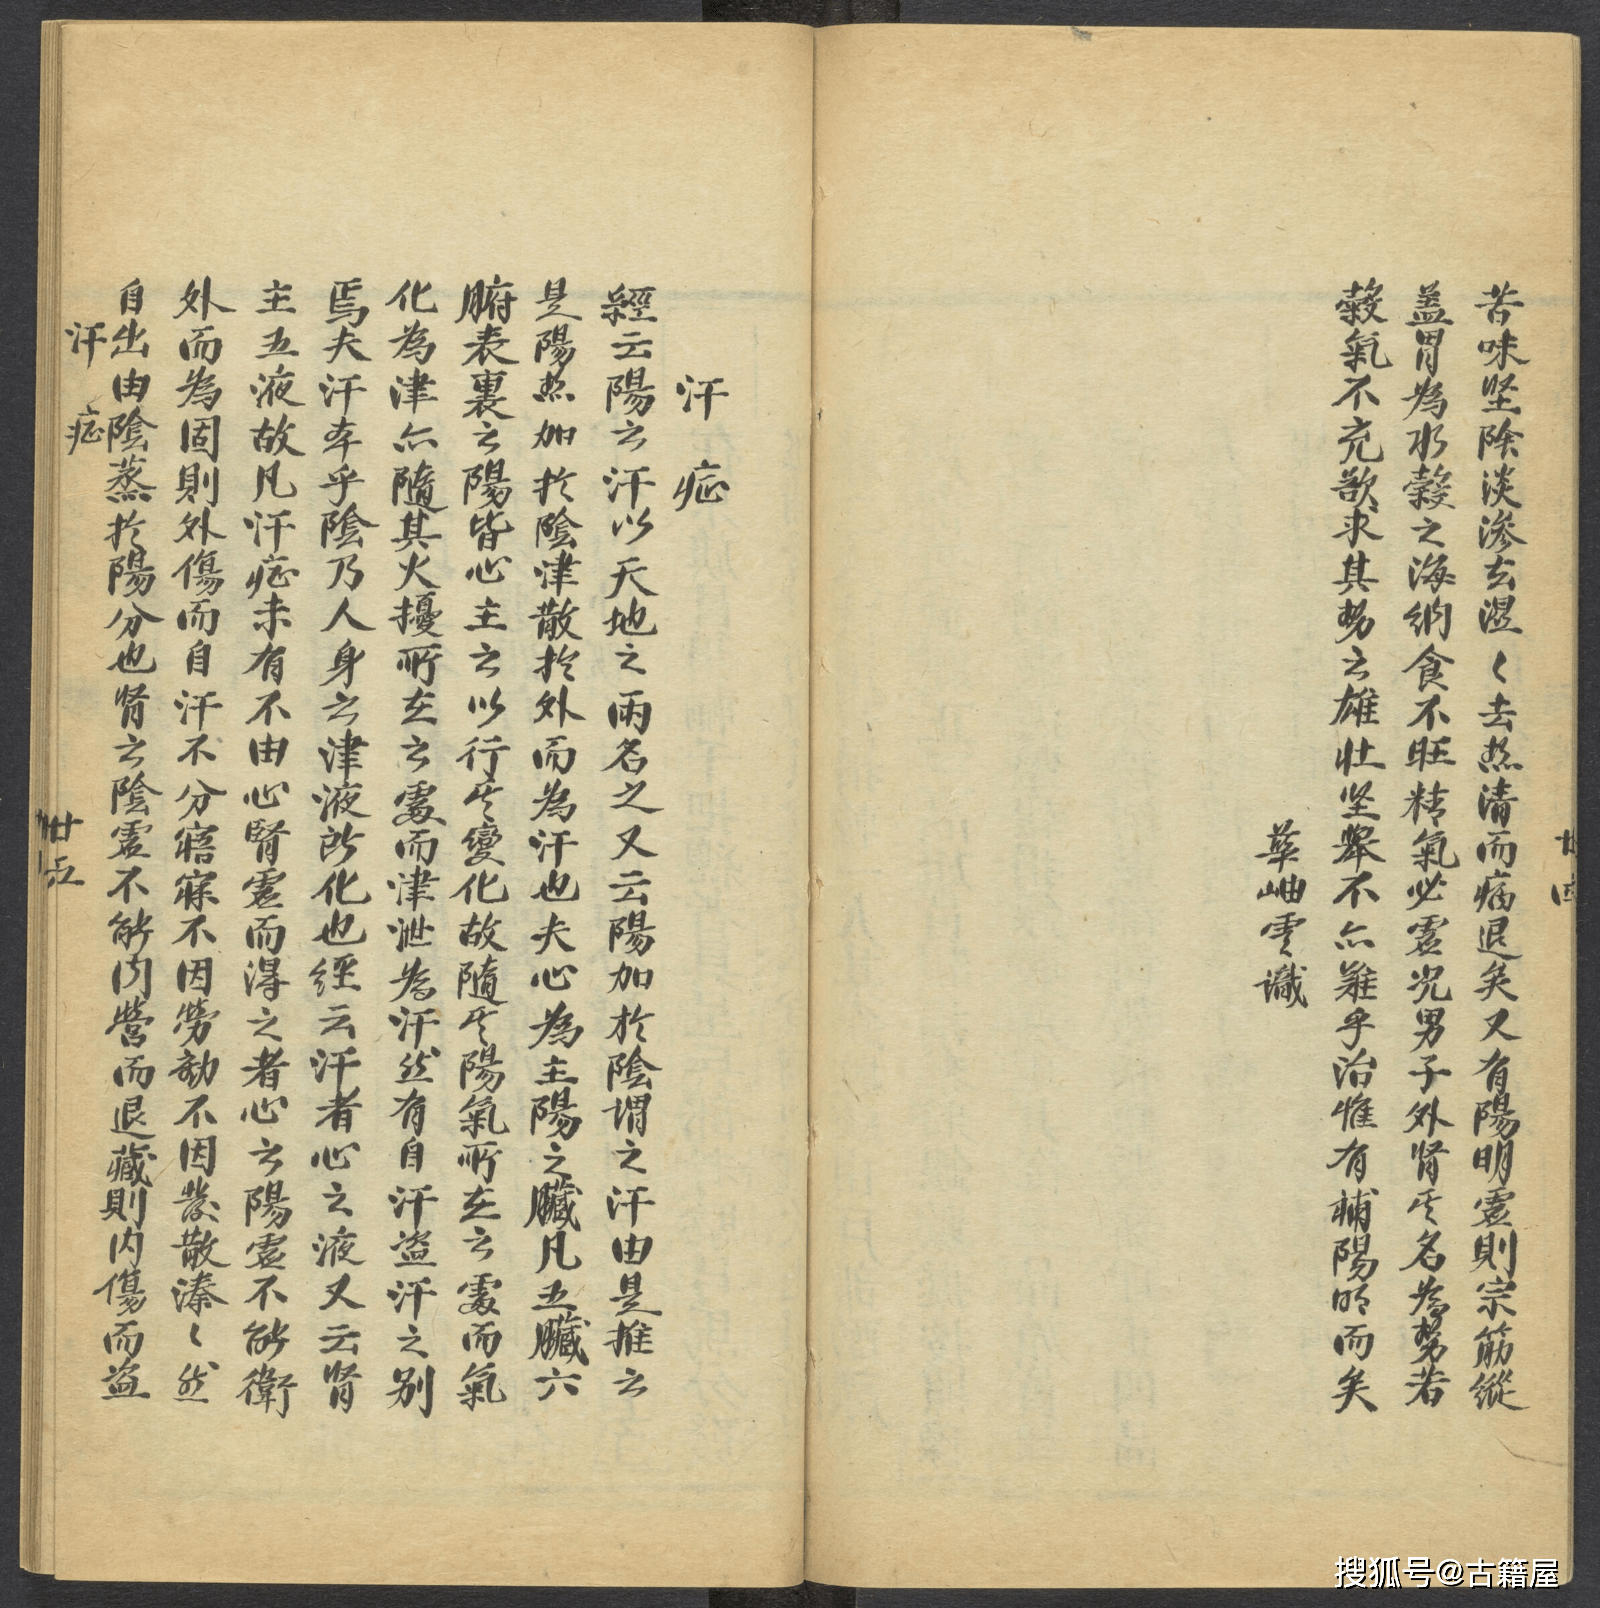 苦味坚陰淡滲去濕〻去热清而病退矣又有陽明虛則宗筋縱
盖胃為水榖之海納食不旺精氣必虛况男子外腎其名為势若
榖氣不充欲求其势之雄壮坚舉不亦难乎治惟有補陽明而矣
華岫雲識
廿四
汗症
經云陽之汗以天地之雨名之又云陽加於陰謂之汗由是推之
是陽热加於陰津散於外而為汗也夫心為主陽之臟凡五臟六
腑表裏之陽皆心主之以行其變化故隨其陽氣所在之處而氣
化為津亦隨其火擾所在之處而津泄為汗然有自汗盗汗之别
焉夫汗本乎陰乃人身之津液所化也經云汗者心之液又云腎
主五液故凡汗症未有不由心腎虛而得之者心之陽虛不能衛
外而為固則外傷而自汗不分寤寐不因勞動不因發散溱〻然
自出由陰蒸於陽分也腎之陰虛不能内營而退藏則内傷而盗
汗症
廿五
搜狐号@古籍屋